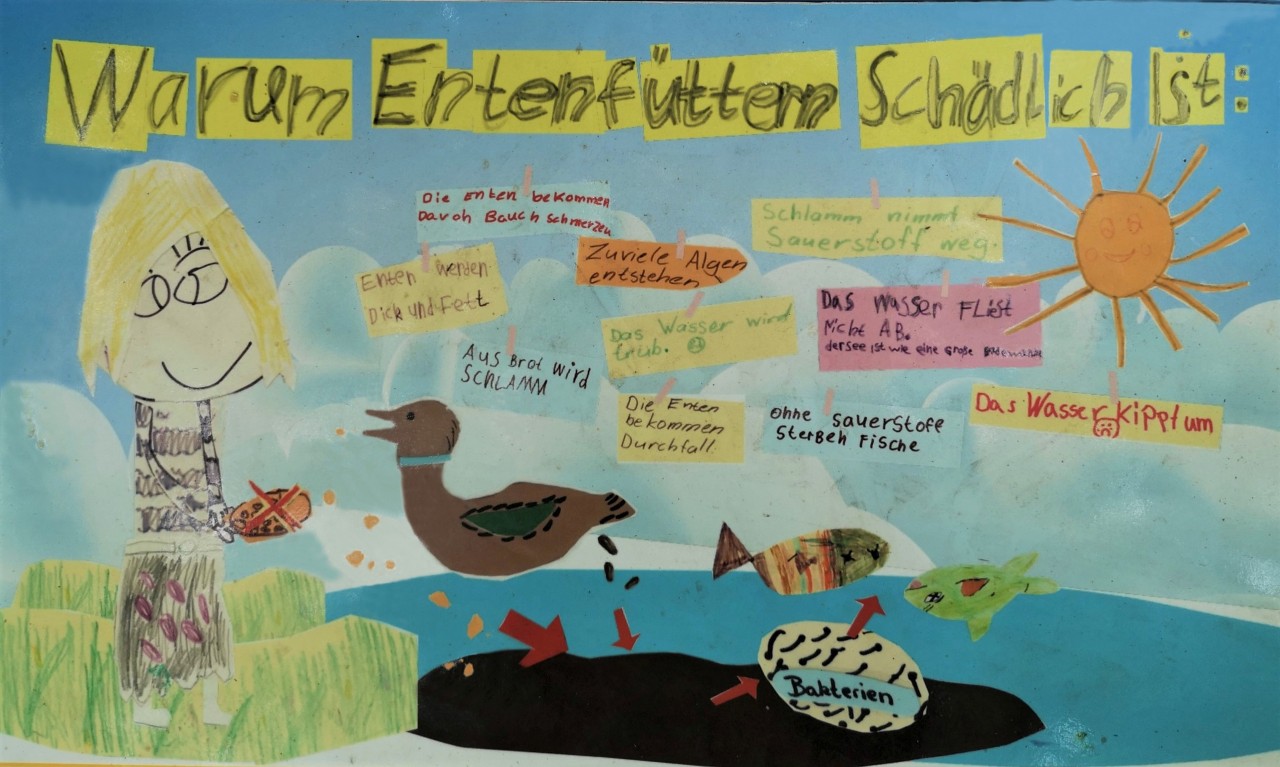 Warum Entenfüttern Schädlich Ist:
Die Enten bekommen
Davoh Bauch schmerzen
Schlamm nimmt
Sauerstoff weg.
Zuviele Algen
entstehen
Enten werden
Dick und Fett
Das Wasser FLiest
Nicht AB.
der see ist wie eine Große
Das Wasser wird
trüb.
Aus Brot wird
SCHLAMM
Die Enten
bekommen
Durchfall.
ohne sauerstoff
sterben Fische
Das Wasser Kippt um
Bakterien